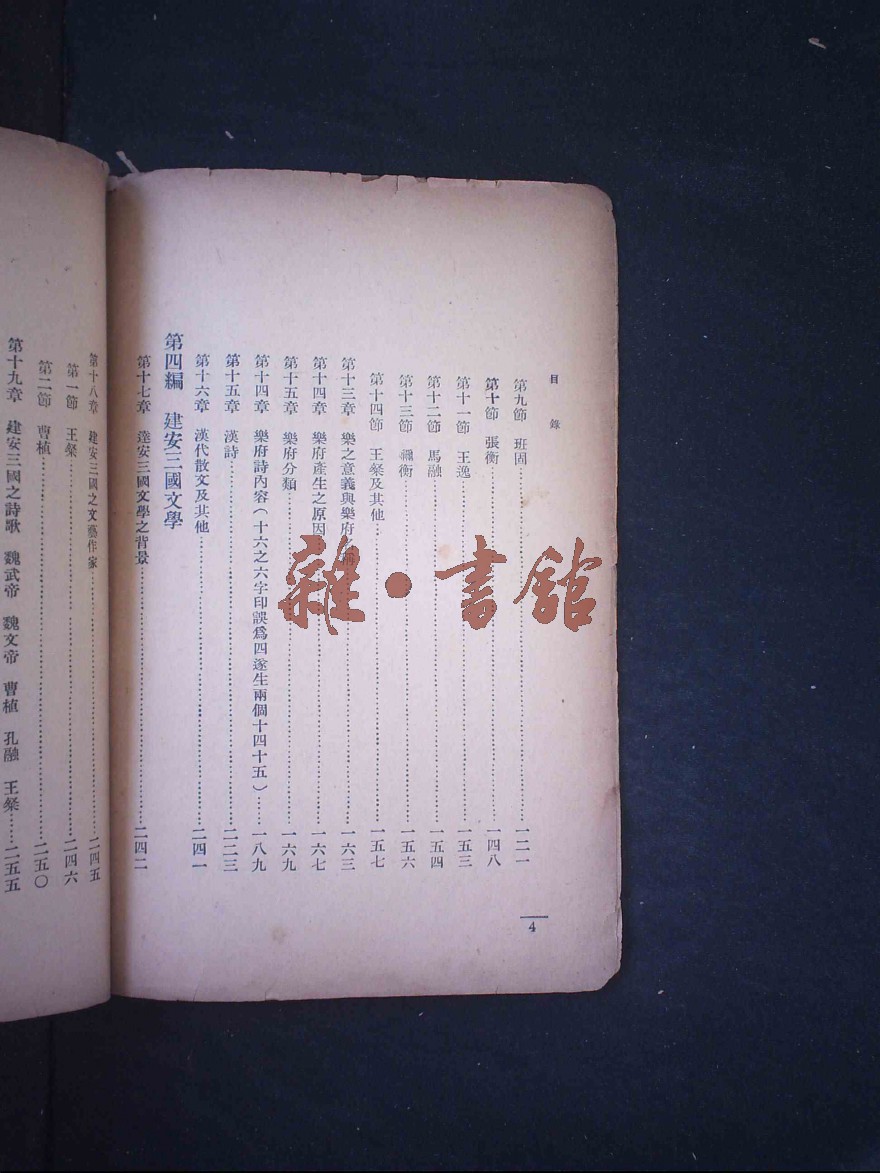 目錄
第九節 班固………一二一
第十節 張衡………一四八
第十一節 王逸………一五三
第十二節 馬融………一五四
第十三節 禰衡………一五六
第十四節 王粲及其他………一五七
第十三章 樂之意義與樂府………一六三
第十四章 樂府產生之原因………一六七
第十五章 樂府分類………一六九
第十四章 樂府詩內容(十六之六字印誤爲四遂生兩個十四十五)………一八九
第十五章 漢詩………二二三
第十六章 漢代散文及其他………二四一
第四編 建安三國文學
第十七章 建安三國文學之背景………二四二
4
第十八章 建安三國之文藝作家………二四五
第一節 王粲………二四六
第二節 曹植………二五〇
第十九章 建安三國之詩歌 魏武帝 魏文帝 曹植 孔融 王粲………二五五
雜·書館